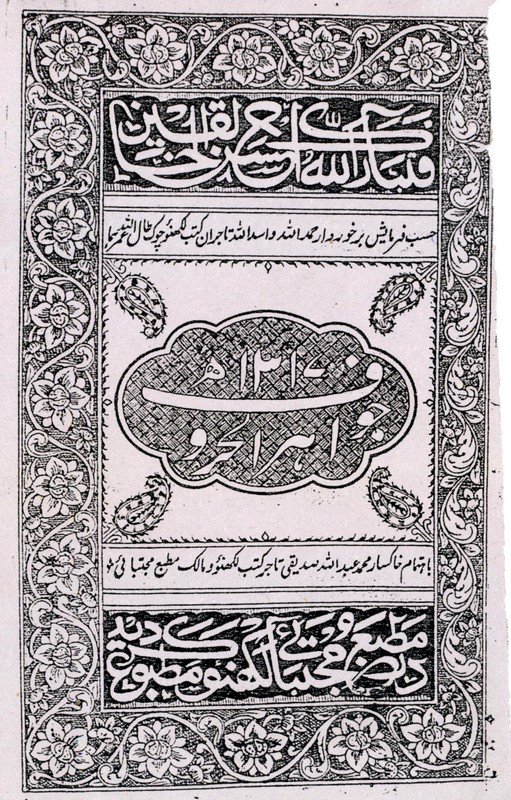 فتبارک اللہ احسن الخالقین
حسب فرمایش برخوردار حمد اللہ و اسد اللہ تاجران کتب لکھنؤ چوک
۱۳۱۷ھ
جواہر الحروف
باہتمام خاکسار محمد عبد اللہ صدیقی تاجر کتب لکھنؤ و مالک مطبع مجتبائی
در مطبع مجتبائی واقع لکھنؤ مطبوع گردید